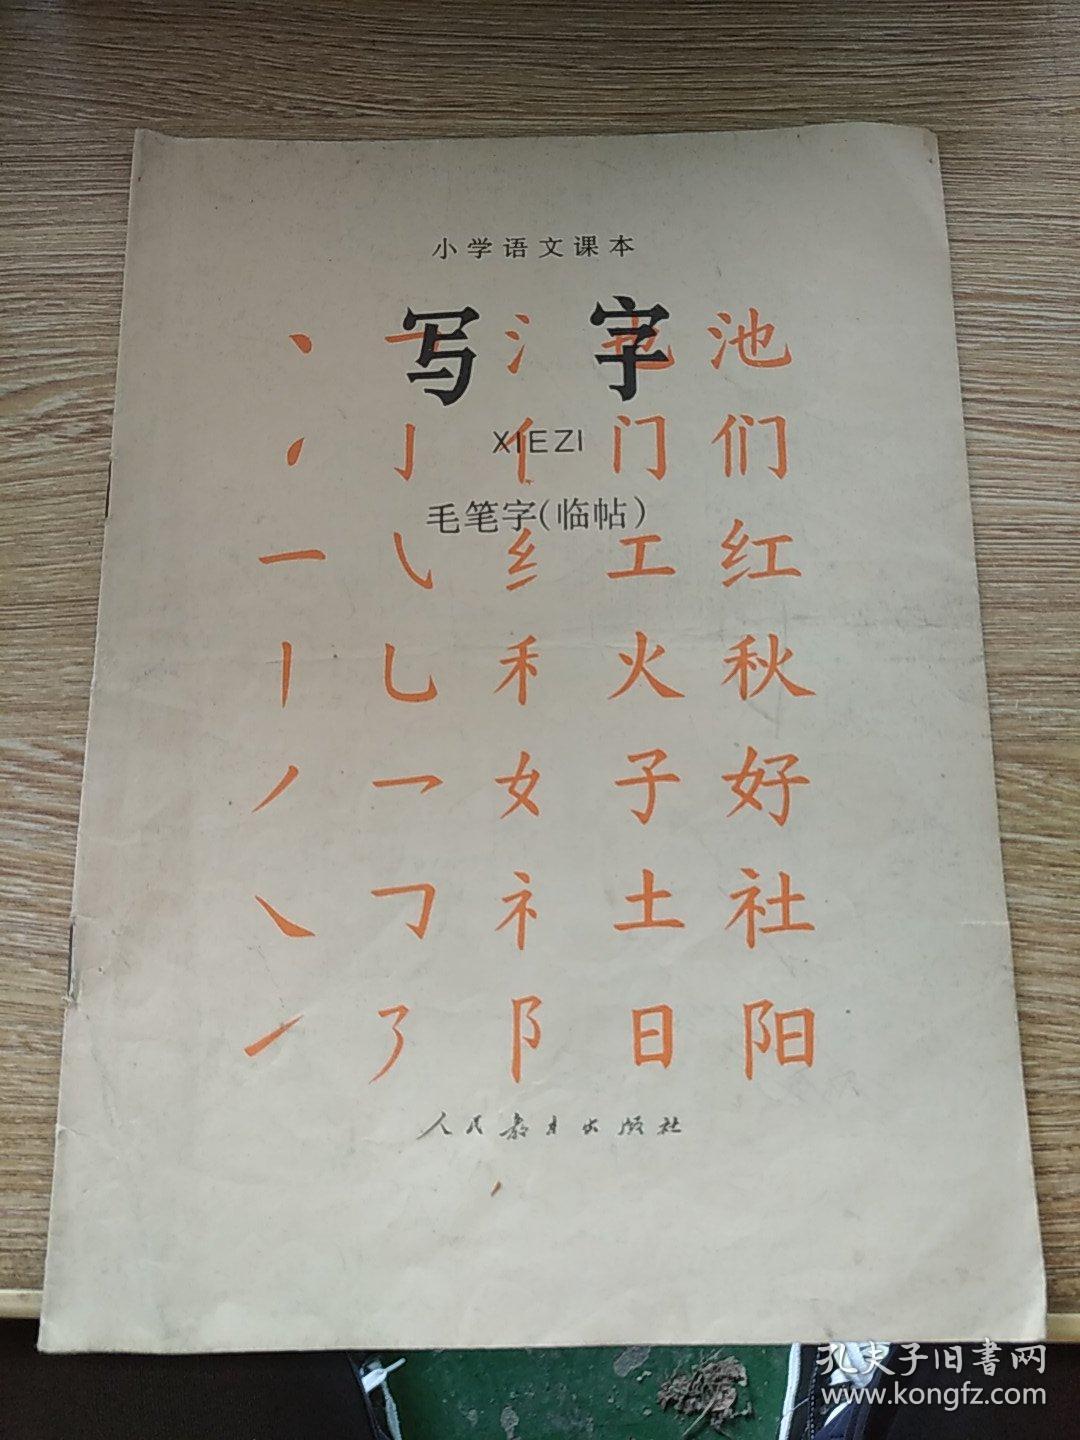 小学语文课本
写字
XIEZI
毛笔字(临帖)
丶 乛 氵 也 池
丿 亅 亻 门 们
一 ㇂ 纟 工 红
丨 乚 禾 火 秋
㇀ 乛 女 子 好
㇏ 𠃌 礻 土 社
㇀ ㇋ 阝 日 阳
人民教育出版社
孔夫子旧書网
www.kongfz.com